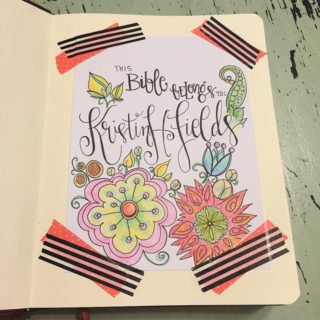 THIS
Bible BELONGS TO:
Kristin Fields